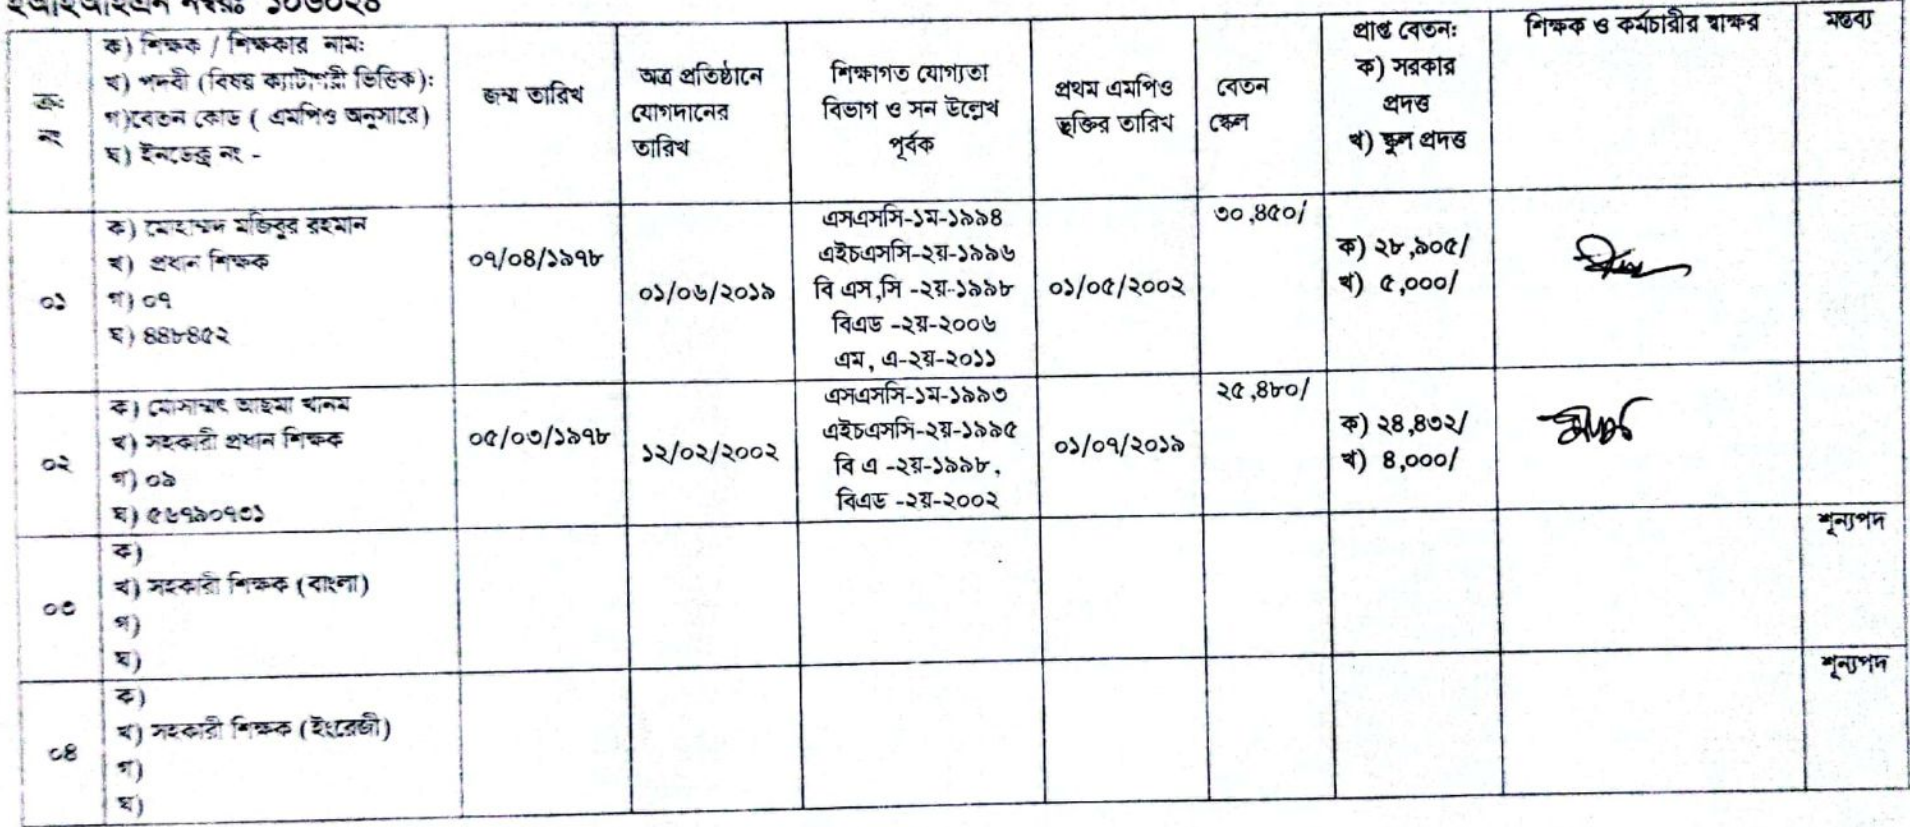 ইআইআইএন নম্বরঃ ১০৬০২৪
ক্র: নং
ক) শিক্ষক / শিক্ষকার নাম:
খ) পদবী (বিষয় ক্যাটাগরী ভিত্তিক):
গ)বেতন কোড ( এমপিও অনুসারে)
ঘ) ইনডেক্স নং -
জন্ম তারিখ
অত্র প্রতিষ্ঠানে
যোগদানের
তারিখ
শিক্ষাগত যোগ্যতা
বিভাগ ও সন উল্লেখ
পূর্বক
প্রথম এমপিও
ভূক্তির তারিখ
বেতন
স্কেল
প্রাপ্ত বেতন:
ক) সরকার
প্রদত্ত
খ) স্কুল প্রদত্ত
শিক্ষক ও কর্মচারীর স্বাক্ষর
মন্তব্য
০১
ক) মোহাম্মদ মজিবুর রহমান
খ) প্রধান শিক্ষক
গ) ০৭
ঘ) ৪৪৮৪৫২
০৭/০৪/১৯৭৮
০১/০৬/২০১৯
এসএসসি-১ম-১৯৯৪
এইচএসসি-২য়-১৯৯৬
বি এস,সি -২য়-১৯৯৮
বিএড -২য়-২০০৬
এম, এ-২য়-২০১১
০১/০৫/২০০২
৩০,৪৫০/
ক) ২৮,৯০৫/
খ) ৫,০০০/
০২
ক) মোসাম্মৎ আছমা খানম
খ) সহকারী প্রধান শিক্ষক
গ) ০৯
ঘ) ৫৬৭৯০৭৩১
০৫/০৩/১৯৭৮
১২/০২/২০০২
এসএসসি-১ম-১৯৯৩
এইচএসসি-২য়-১৯৯৫
বি এ -২য়-১৯৯৮,
বিএড -২য়-২০০২
০১/০৭/২০১৯
২৫,৪৮০/
ক) ২৪,৪৩২/
খ) ৪,০০০/
০৩
ক)
খ) সহকারী শিক্ষক (বাংলা)
গ)
ঘ)
শূন্যপদ
০৪
ক)
খ) সহকারী শিক্ষক (ইংরেজী)
গ)
ঘ)
শূন্যপদ